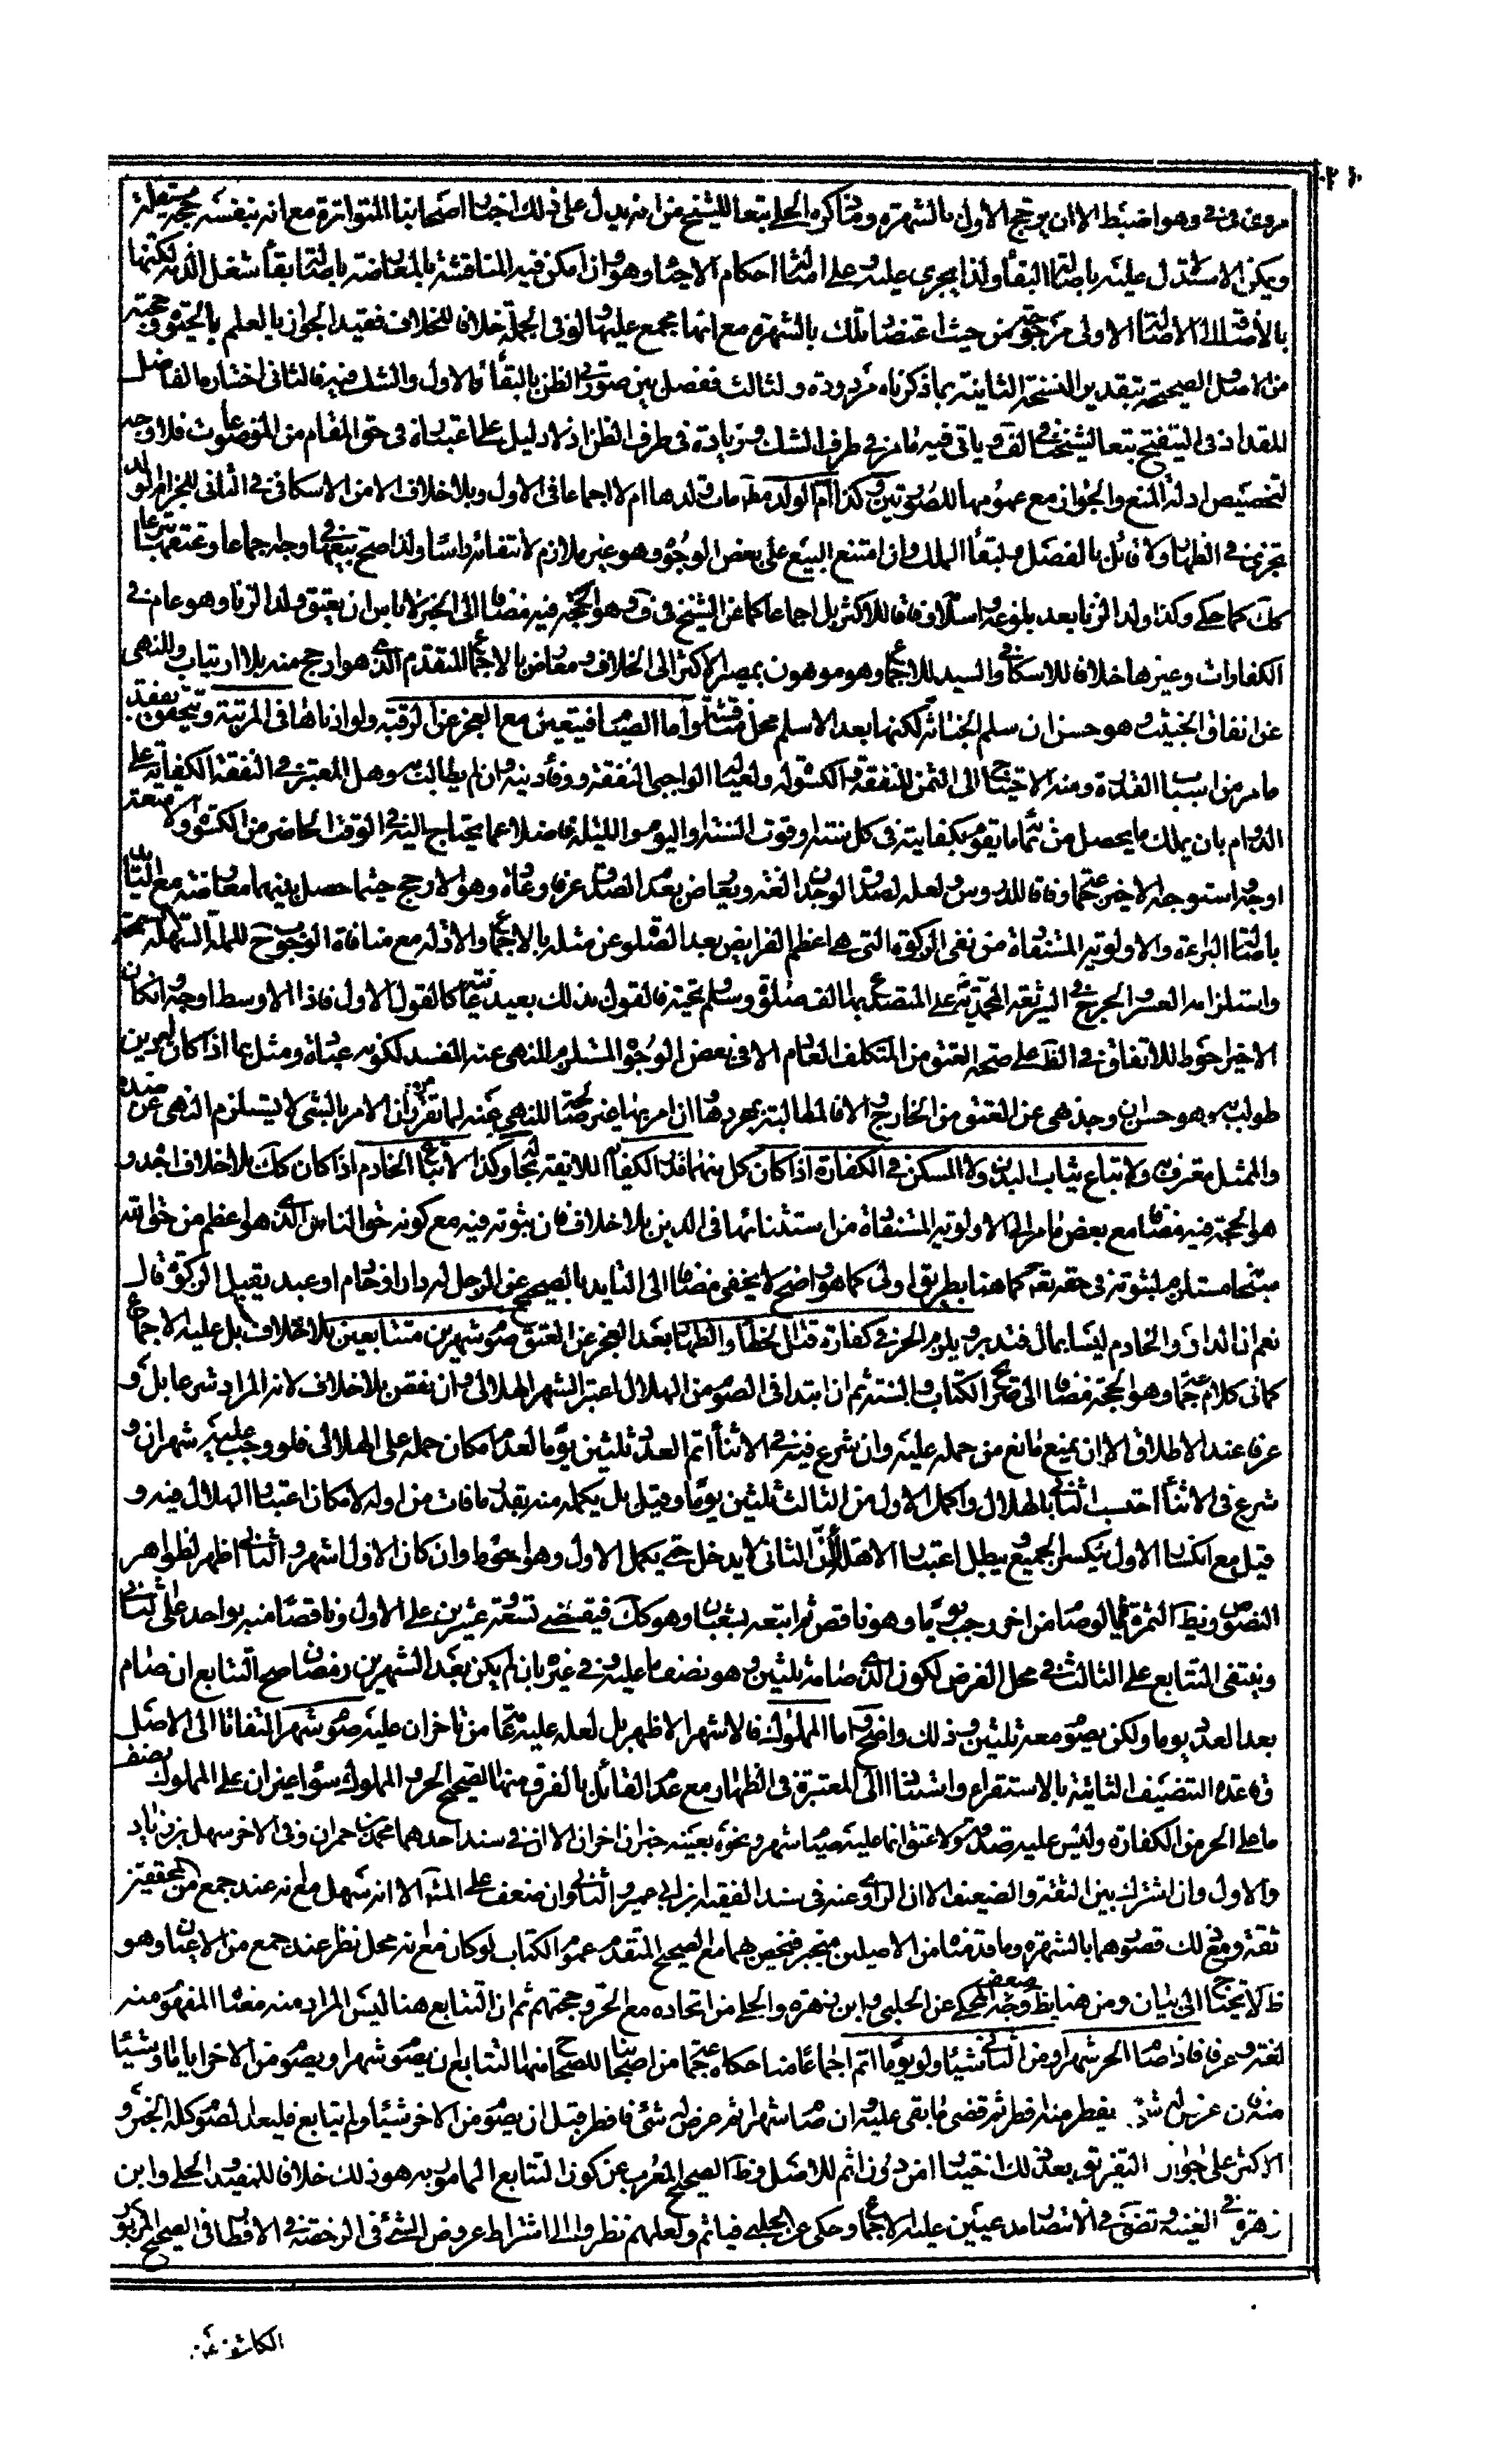 مروى فى ف وهو اضبط الا ان يرجح الاول بالشهرة وما ذكره الحلى تبعا للشيخ من انه يدل على ذلك اخبار اصحابنا المتواترة مع انه بنفسه حجة مستقلة
ويمكن الاستدلال عليه باصالة البقاء ولذا يجرى عليه على اصالتها احكام الاحياء وهو وان امكن فيه المناقشة بالمعارضة باصالة بقاء شغل الذمة لكنها
بالاضافة الى الاصالة الاولى مرجوحة من حيث اعتضاد تلك بالشهرة مع انها مجمع عليها ولو فى الجملة خلافا للخلاف فقيد الجواز بالعلم بالحيوة وحجته
من الاصل الصحيحة بتقدير النسخة الثانية بما ذكرناه مردودة ولثالث ففصل بين صورتى الظن بالبقاء فالاول والشك فيه فالثانى اختاره الفاضل
المقداد فى التنقيح تبعا لشيخنا فى لف وياتى فيه ما مر فى طرف الشك وزيادة فى طرف الظن اذ لا دليل على اعتباره فى نحو المقام من الموضوعات فلا وجه
لتخصيص ادلة المنع والجواز مع عمومها للصورتين وكذا ام الولد مط مات ولدها ام لا اجماعا فى الاول وبلا خلاف الا من الاسكافى فى الثانى للخبر ام الولد
تجزى فى الظهار ولا قائل بالفصل ولبقاء الملك وان امتنع البيع على بعض الوجوه وهو غير ملازم لانتفائه راسا ولذا صح بيعها فى وجه اجماعا وعتقها تبرعا
كك كما حكى وكذا ولد الزنا بعد بلوغه واسلامه وفاقا للاكثر بل اجماعا كما عن الشيخ فى ف وهو الحجة فيه مضافا الى الخبر لا باس ان يعتق ولد الزنا وهو عام فى
الكفارات وغيرها خلافا للاسكافى والسيد للاجماع وهو موهون بمصير الاكثر الى الخلاف ومعارض بالاجماع المتقدم الذى هو ارجح منه بلا ارتياب وللنهى
عن انفاق الخبيث وهو حسن ان سلم الخباثة لكنها بعد الاسلام محل مناقشة واما الصيام فيتعين مع العجز عن الرقبة ولو اذناها فى المرتبة ويتحقق بفقد
ما مر من اسباب القدرة ومنه الاحتياج الى الثمن للنفقة والكسوة له ولعياله الواجبى النفقة ووفاء دينه وان لم يطالب به وهل المعتبر فى النفقة الكفاية على
الدوام بان يملك ما يحصل من نمائه ما يقوم بكفايته فى كل سنة او قوت السنة او اليوم والليلة فاضلا عما يحتاج اليه فى الوقت الحاضر من الكسوة والامتعة
اوجه استوجه الاخير جماعة وفاقا للدروس ولعله لصدق الوجدان لغة ويعارض بعدم الصدق عرفا وعادة وهو الارجح حيثما حصل بينهما معارضة مع التأييد
باصالة البراءة والاولوية المستفادة من نفى الزكوة التى هى اعظم الفرايض بعد الصلوة عن مثله بالاجماع والادلة مع منافاة الوجوب ح للملة السهلة السمحة
واستلزامه العسر والحرج فى الشريعة المحمدية على المتصدع بها الف صلوة وسلم وتحية فالقول بذلك بعيد غايته كالقول الاول فاذا الاوسط اوجه وان كان
الاخير احوط للاتفاق فى الظ على صحة العتق من المتكلف العادم الا فى بعض الوجوه المستلزم للنهى عنه المفسد لكونه عبادة ومثل بما اذا كان لمدين
طولب به وهو حسن ان وجد نهى عن العتق من الخارج والا فالمطالبة بمجردها وان امر بها غير صالحة للنهى عنه لما تقرر من ان الامر بالشئ لا يستلزم النهى عن ضده
والممثل معترف به ولا تباع ثياب البدن ولا المسكن فى الكفارة اذا كان كل منهما قدر الكفاية اللائقة بحاله وكذا لا يباع الخادم اذا كان كك بلا خلاف اجده و
هو الحجة فيه مضافا مع بعض ما مر الى الاولوية المستفادة من استثنائها فى الدين بلا خلاف فان ثبوته فيه مع كونه حق الناس الذى هو اعظم من حق الله
سبحانه مستلزم لثبوته فى حقه تعالى كما هنا بطريق اولى كما هو واضح لا يخفى مضافا الى التاييد بالصحيح عن الرجل له دار او خادم او عبد يقبل الزكوة قال
نعم ان الدار والخادم ليسا بمال فتدبر ويلزم الحر فى كفارة قتل الخطأ والظهار بعد العجز عن العتق صوم شهرين متتابعين بلا خلاف بل عليه الاجماع
كما فى كلام جماعة وهو الحجة مضافا الى صريح الكتاب والسنة ثم ان ابتدا فى الصوم من الهلال اعتبر الشهر الهلالى وان نقص بلا خلاف لانه المراد شرعا بل و
عرفا عند الاطلاق الا ان يمنع مانع من حمله عليه وان شرع فيه فى الاثناء اتم العدد ثلثين يوما لعدم امكان حمله على الهلالى فلو وجب عليه شهران و
شرع فى الاثناء احتسب الثانى بالهلال واكمل الاول من الثالث ثلثين يوما وقيل بل يكمله منه بقدر ما فات من اوله لامكان اعتبار الهلال فيه و
قيل مع انكسار الاول ينكسر الجميع ويبطل اعتبار الاهلة لان الثانى لا يدخل حتى يكمل الاول وهو احوط وان كان الاول اشهر والثانى اظهر لظواهر
النصوص ويظهر الثمرة فيما لو صام من اخر رجب يوما وهو ناقص ثم اتبعه بشعبان وهو كك فيقضى تسعة عشرين على الاول وناقصا منه بواحد على الثانى
وينتفى التتابع على الثالث فى محل الفرض لكون الذى صامه ثلثين وهو نصف ما عليه وفى غيره بان لم يكن بعد الشهرين رمضان صح التتابع ان صام
بعد العدد يوما ولكن يصوم معه ثلثين وذلك واضح واما المملوك فالاشهر الاظهر بل لعله عليه عامة من تاخر ان عليه صوم شهر التفاتا الى الاصل
وقاعدة التنصيف الثابتة بالاستقراء واستنادا الى المعتبرة فى الظهار مع عدم القائل بالفرق منها الصحيح الحر والمملوك سواء غير ان على المملوك نصف
ما على الحر من الكفارة وليس عليه صدقة ولا عتق انما عليه صيام شهر ونحوه بعينه خبران اخران الا ان فى سند احدهما محمد بن حمران وفى الاخر سهل بن زياد
والاول وان اشترك بين الثقة والضعيف الا ان الراوى عنه فى سند الفقيه ابن ابى عمير والثانى وان ضعف على المش الا انه سهل مع انه عند جمع من المحققين
ثقة ومع ذلك قصورهما بالشهرة وما قدمناه من الاصلين منجبر فتخصيص بهما مع الصحيح المتقدم عموم الكتاب لو كان مع انه محل نظر عند جمع من الاعيان وهو
ظ لا يحتاج الى بيان ومن هنا يظ وجه ضعف المحكى عن الحلبى وابن زهرة والحلى من اتحاده مع الحر وحجتهم ثم ان التتابع هنا ليس المراد منه معناه المفهوم منه
لغة وعرفا فاذا صام الحر شهرا ومن الثانى شيئا ولو يوما اتم اجماعا منا حكاه جماعة من اصحابنا للصحاح منها التتابع ان يصوم شهرا ويصوم من الاخر اياما او شيئا
منه فان عرض له شئ يفطر منه افطر ثم قضى ما بقى عليه وان صام شهرا ثم عرض له شئ فافطر قبل ان يصوم من الاخر شيئا ولم يتابع فليعد الصوم كله الخبر و
الاكثر على جواز التفريق بعد ذلك اختيارا من دون اثم للاصل وظ الصحيح المعرب عن كون التتابع المامور به هو ذلك خلافا للمفيد والحلى وابن
زهرة فى الغنية وتضى فى الانتصار مدعيين عليه الاجماع وحكى عن الحلبى فياثم ولعلهم نظروا الى اشتراط عروض الشئ فى الرخصة فى الافطار فى الصحيح المزبور
الكاشف عن